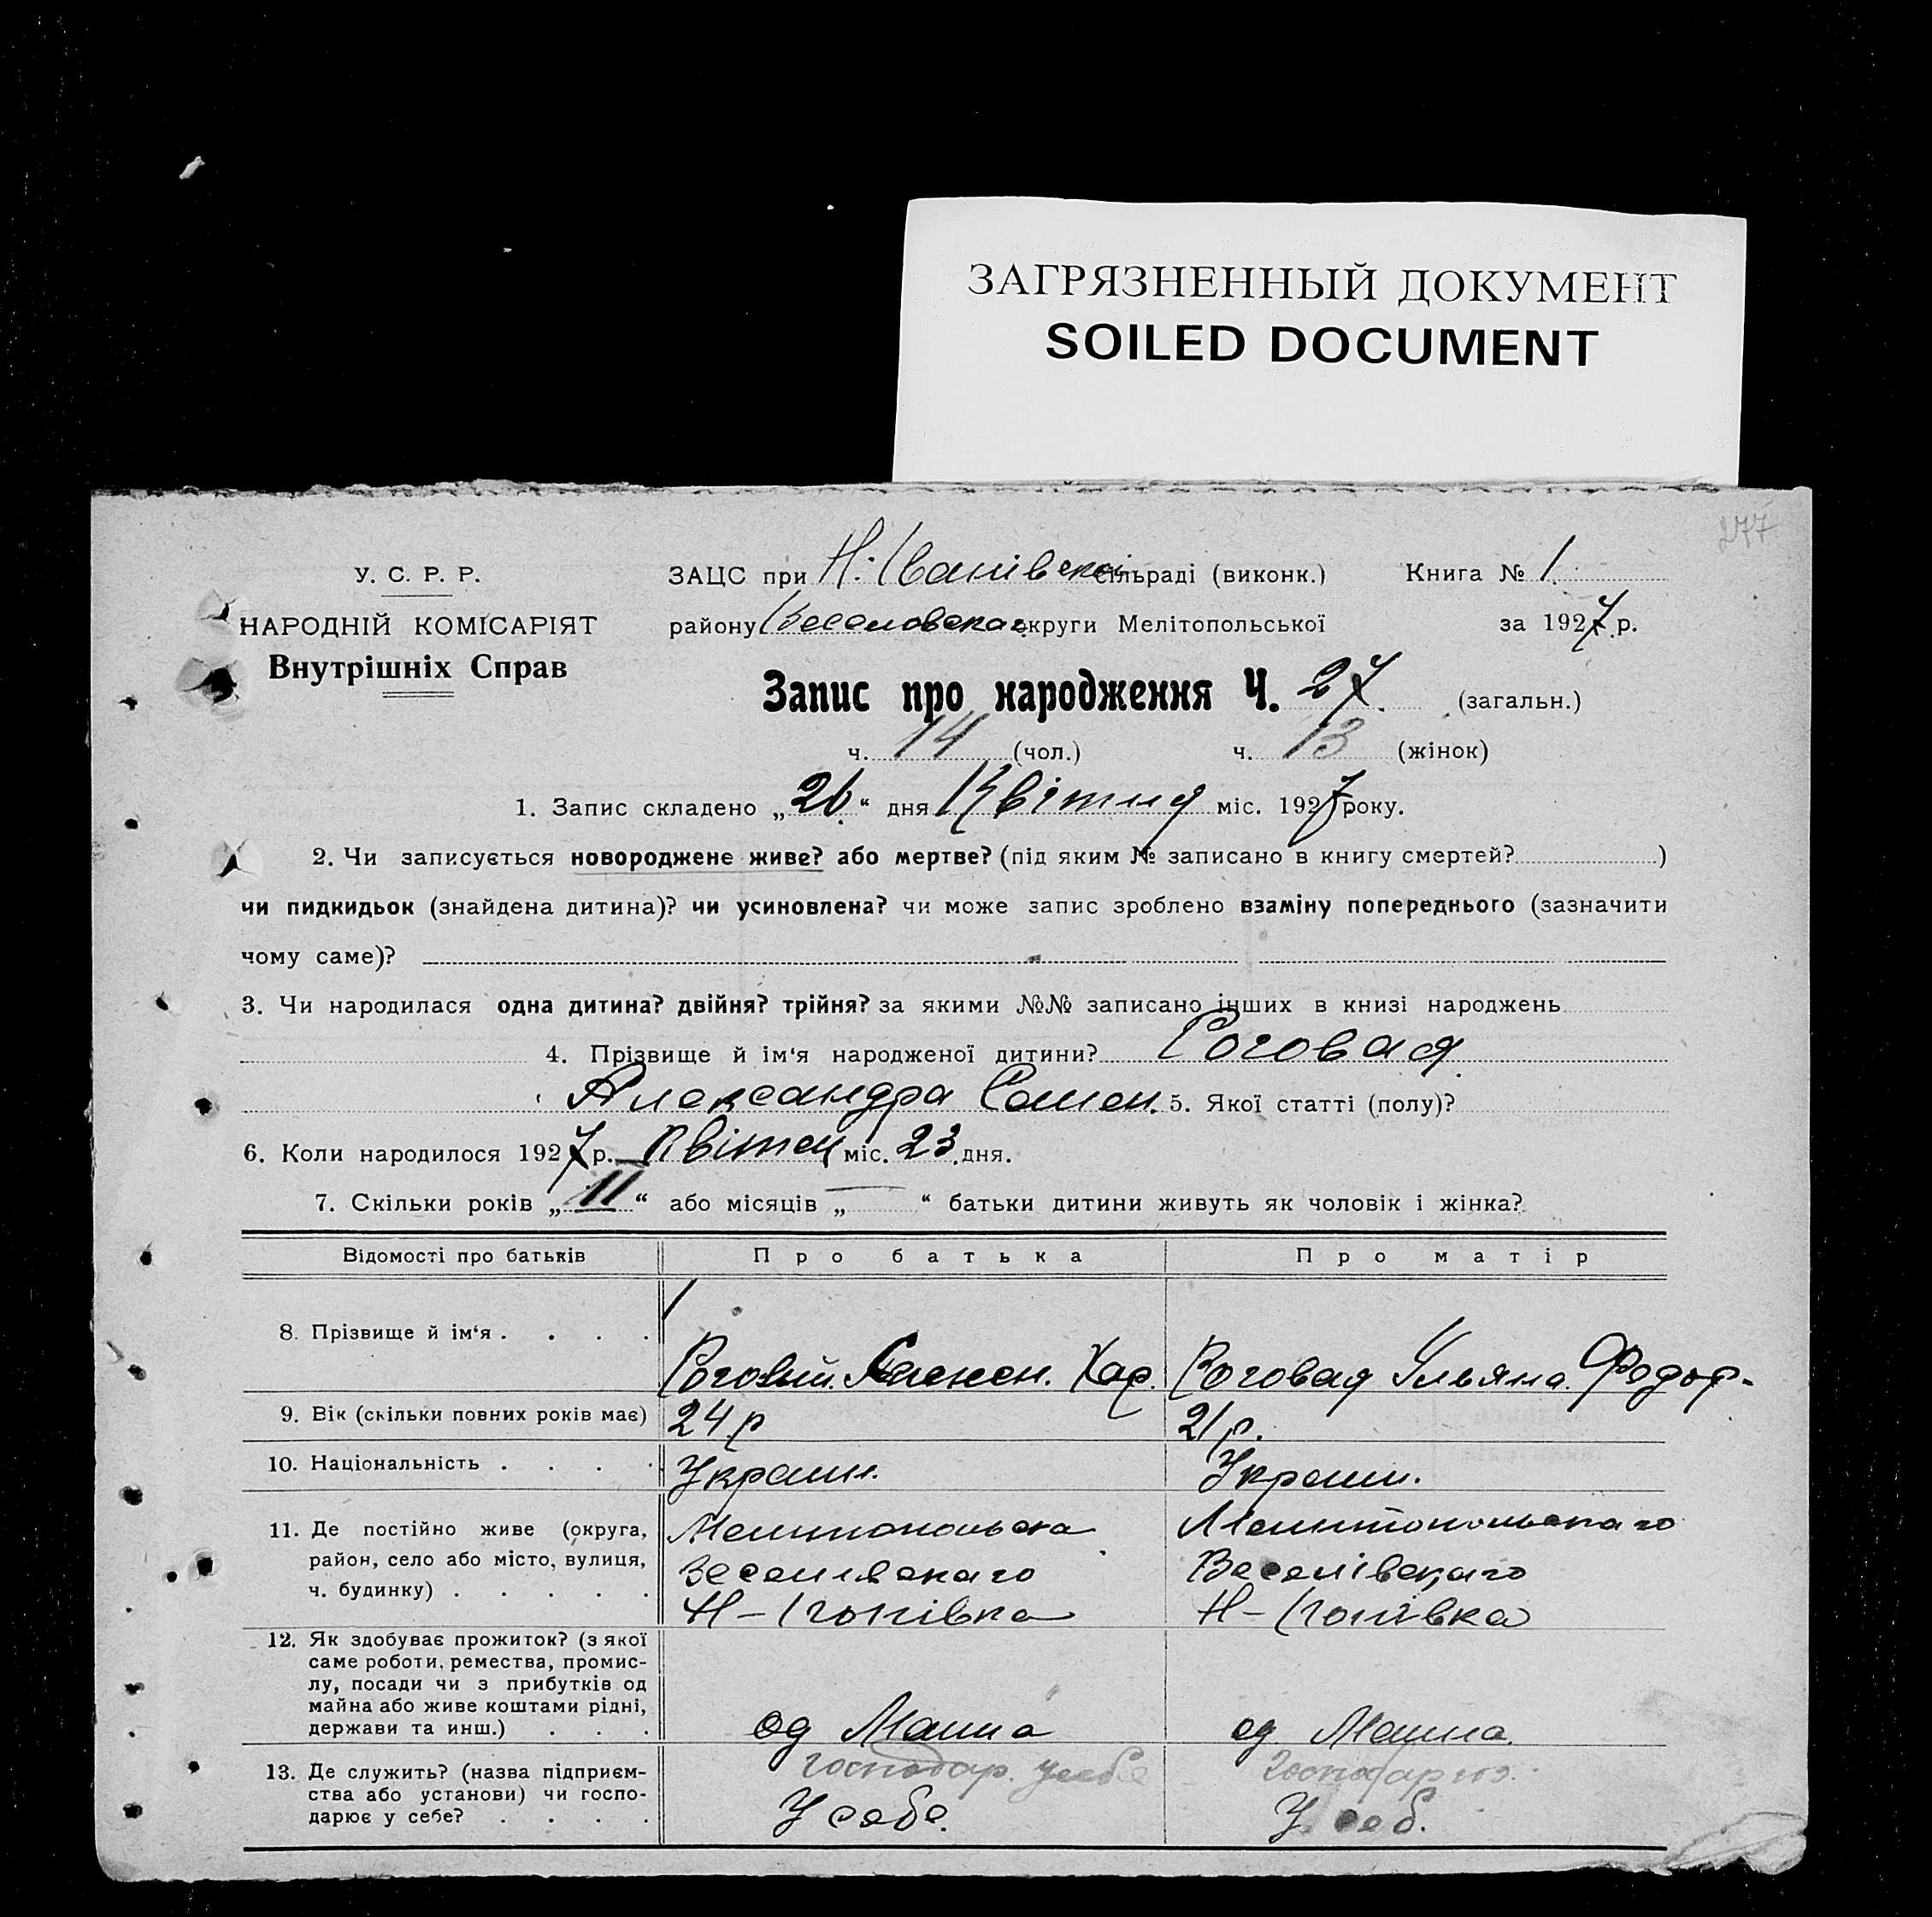 ЗАГРЯЗНЕННЫЙ ДОКУМЕНТ
SOILED DOCUMENT
277
У. С. Р. Р.
НАРОДНІЙ КОМІСАРІЯТ
Внутрішніх Справ
ЗАЦС при Н. Іванівской сільраді (виконк.) Книга № 1.
району Веселовскаг округи Мелітопольської за 1927 р.
Запис про народження Ч. 27. (загальн.)
ч. 14 (чол.) ч. 13 (жінок)
1. Запис складено „26“ дня Квітня міс. 1927 року.
2. Чи записується новороджене живе? або мертве? (під яким № записано в книгу смертей? )
чи пидкидьок (знайдена дитина)? чи усиновлена? чи може запис зроблено взаміну попереднього (зазначити
чому саме)?
3. Чи народилася одна дитина? двійня? трійня? за якими №№ записано інших в книзі народжень
4. Прізвище й ім‘я народженої дитини? Роговая
Александра Семен. 5. Якої статті (полу)?
6. Коли народилося 1927 р. Квітен міс. 23 дня.
7. Скільки років „II“ або місяців „—“ батьки дитини живуть як чоловік і жінка?
Відомості про батьків Про батька Про матір
8. Прізвище й ім‘я . . . . Роговий Хар. Роговая Ульяна Федор-
9. Вік (скільки повних років має) 24 р 21 р.
10. Національність . . . . Украин. Украин.
11. Де постійно живе (округа, Мелитопольска Мелитопольскаго
район, село або місто, вулиця, Веселивскаго Веселівскаго
ч. будинку) . . . . . Н-Іванівка Н-Іванівка
12. Як здобуває прожиток? (з якої
саме роботи, ремества, промис-
лу, посади чи з прибутків од
майна або живе коштами рідні,
держави та инш.) . . . од Маина од Маина.
13. Де служить? (назва підприєм- господар. у себе господарюэ.
ства або установи) чи госпо-
дарює у себе? . . . . У себе. У себ.